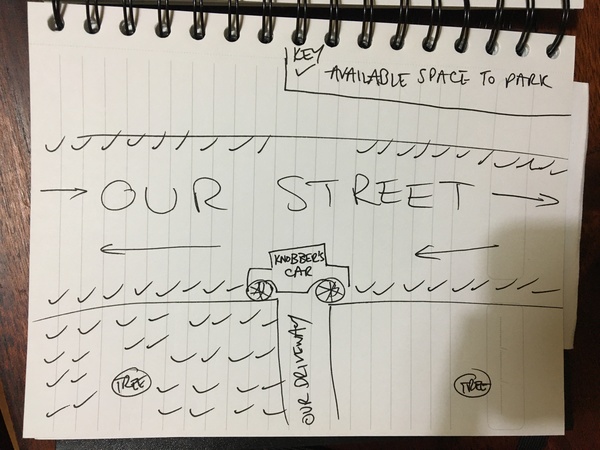 KEY
✓ AVAILABLE SPACE TO PARK
OUR STREET
KNOBBER'S
CAR
OUR DRIVEWAY
TREE
TREE